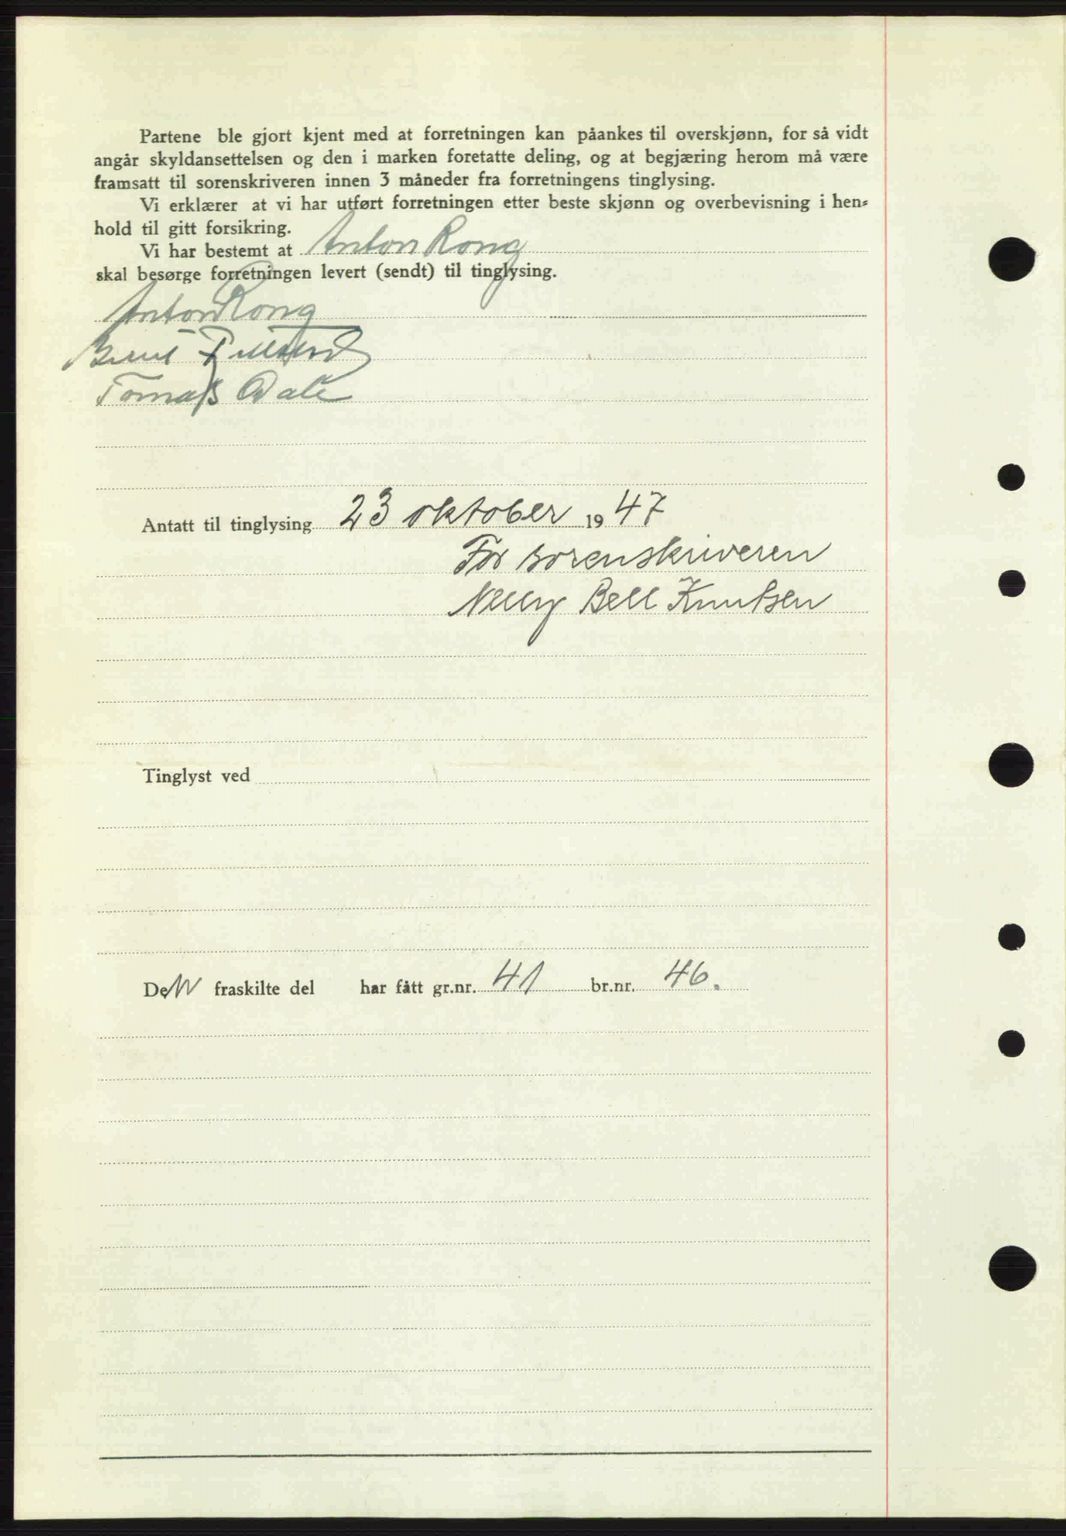 Partene ble gjort kjent med at forretningen kan påankes til overskjønn, for så vidt
angår skyldansettelsen og den i marken foretatte deling, og at begjæring herom må være
framsatt til sorenskriveren innen 3 måneder fra forretningens tinglysing.
Vi erklærer at vi har utført forretningen etter beste skjønn og overbevisning i hen=
hold til gitt forsikring.
Vi har bestemt at Anton Rong
skal besørge forretningen levert (sendt) til tinglysing.
Anton Rong
Tomas Dale
Antatt til tinglysing 23 oktober 1947
For sorenskriveren
Nelly Bell Knutsen
Tinglyst ved
Den fraskilte del har fått gr.nr. 41 br.nr. 46.